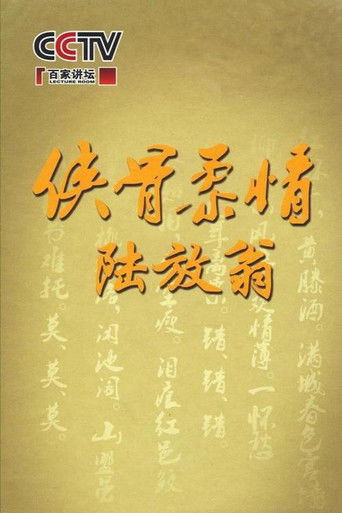 CCTV
百家讲坛
LECTURE ROOM
侠骨柔情
陆放翁
黄縢酒。满城春色宫
情薄。一怀愁
错、错、错
瘦。泪痕红浥
闲池阁。山盟
难托。莫、莫、莫。